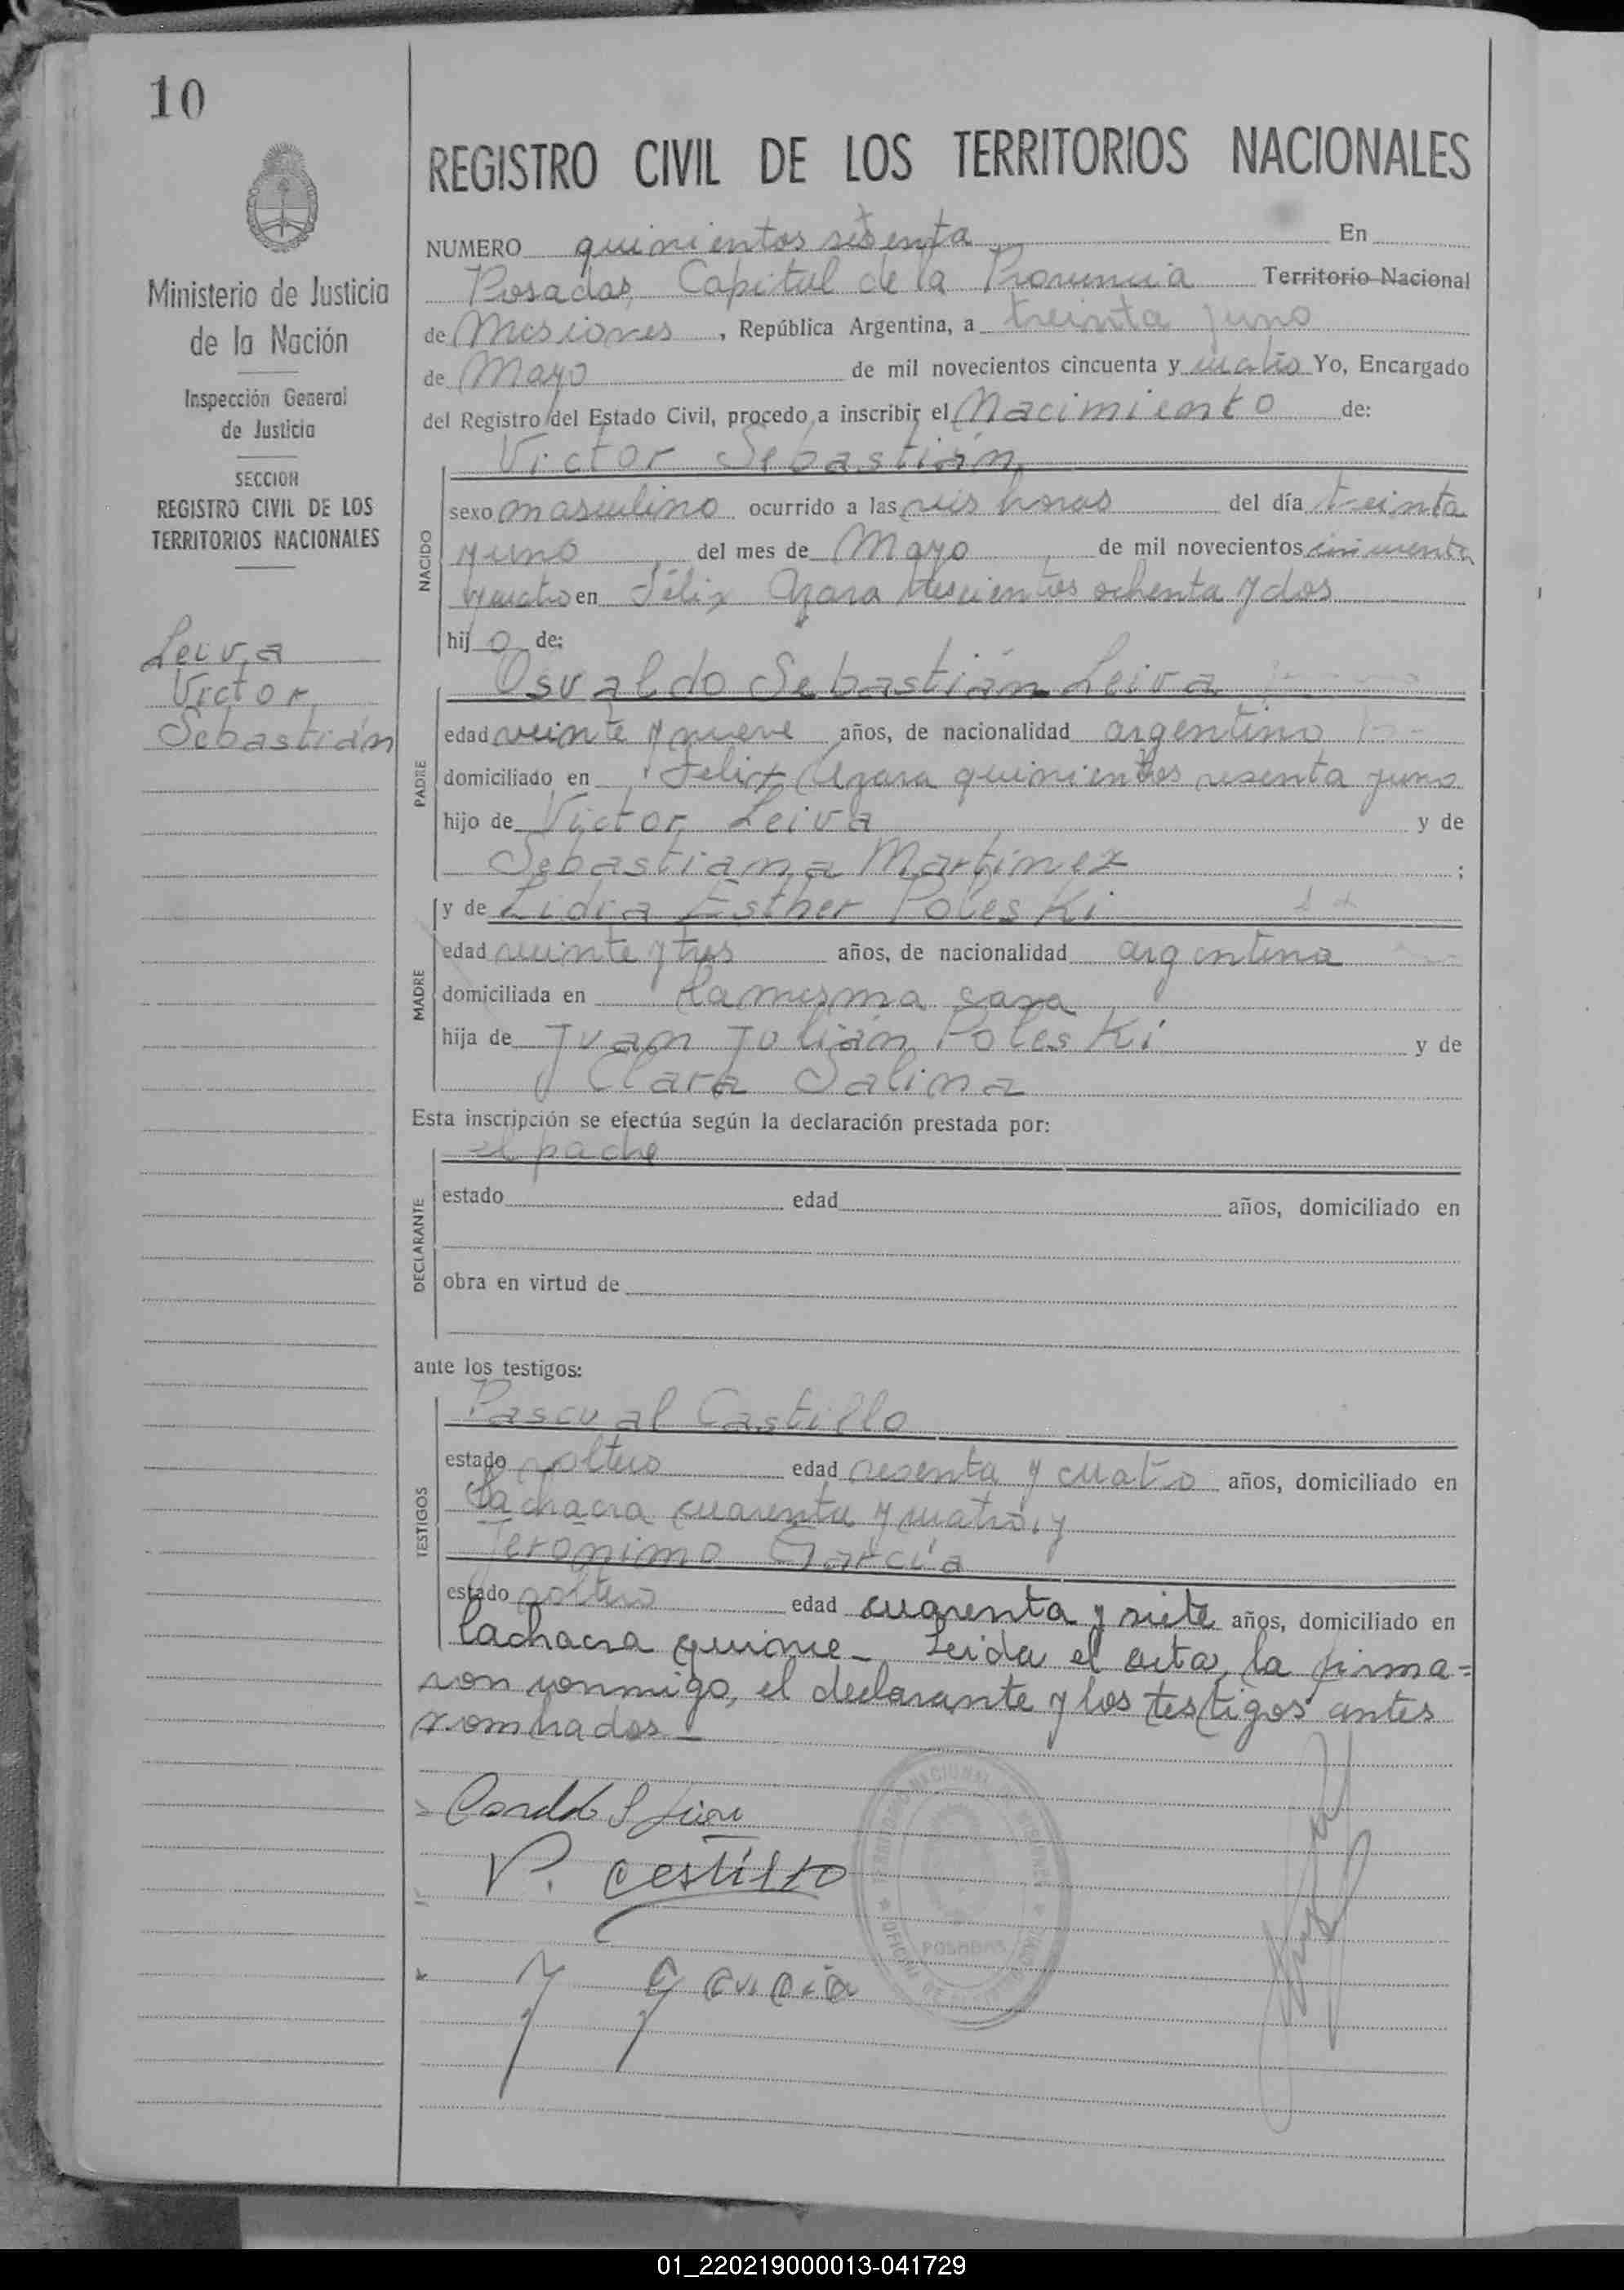 10
Ministerio de Justicia
de la Nación
Inspección General
de Justicia
SECCION
REGISTRO CIVIL DE LOS
TERRITORIOS NACIONALES
Leiva
Victor
Sebastián
REGISTRO CIVIL DE LOS TERRITORIOS NACIONALES
NUMERO quinientos sesenta En
Posadas, Capital de la Provincia Territorio Nacional
de Misiones, República Argentina, a treinta y uno
de Mayo de mil novecientos cincuenta y cuatro Yo, Encargado
del Registro del Estado Civil, procedo a inscribir el Nacimiento de:
Victor Sebastián
NACIDO
sexo masculino ocurrido a las seis horas del día treinta
y uno del mes de Mayo de mil novecientos cincuenta
y cuatro en Félix Azara trescientos ochenta y dos
hijo de:
Osvaldo Sebastián Leiva
PADRE
edad veinte y nueve años, de nacionalidad argentino
domiciliado en Felix Azara quinientos sesenta y uno
hijo de Victor Leiva y de
Sebastiana Martinez ;
y de Lidia Esther Poleski
MADRE
edad veinte y tres años, de nacionalidad argentina
domiciliada en la misma casa
hija de Juan Julián Poleski y de
Clara Salina
Esta inscripción se efectúa según la declaración prestada por:
el padre
DECLARANTE
estado edad años, domiciliado en
obra en virtud de
ante los testigos:
Pascual Castillo
TESTIGOS
estado soltero edad sesenta y cuatro años, domiciliado en
la chacra cuarenta y cuatro, y
Jeronimo García
estado soltero edad cuarenta y siete años, domiciliado en
la chacra quince - Leida el acta, la firma=
ron conmigo, el declarante y los testigos antes
nombrados -
P. Castillo
J Garcia
POSADAS
01_220219000013-041729